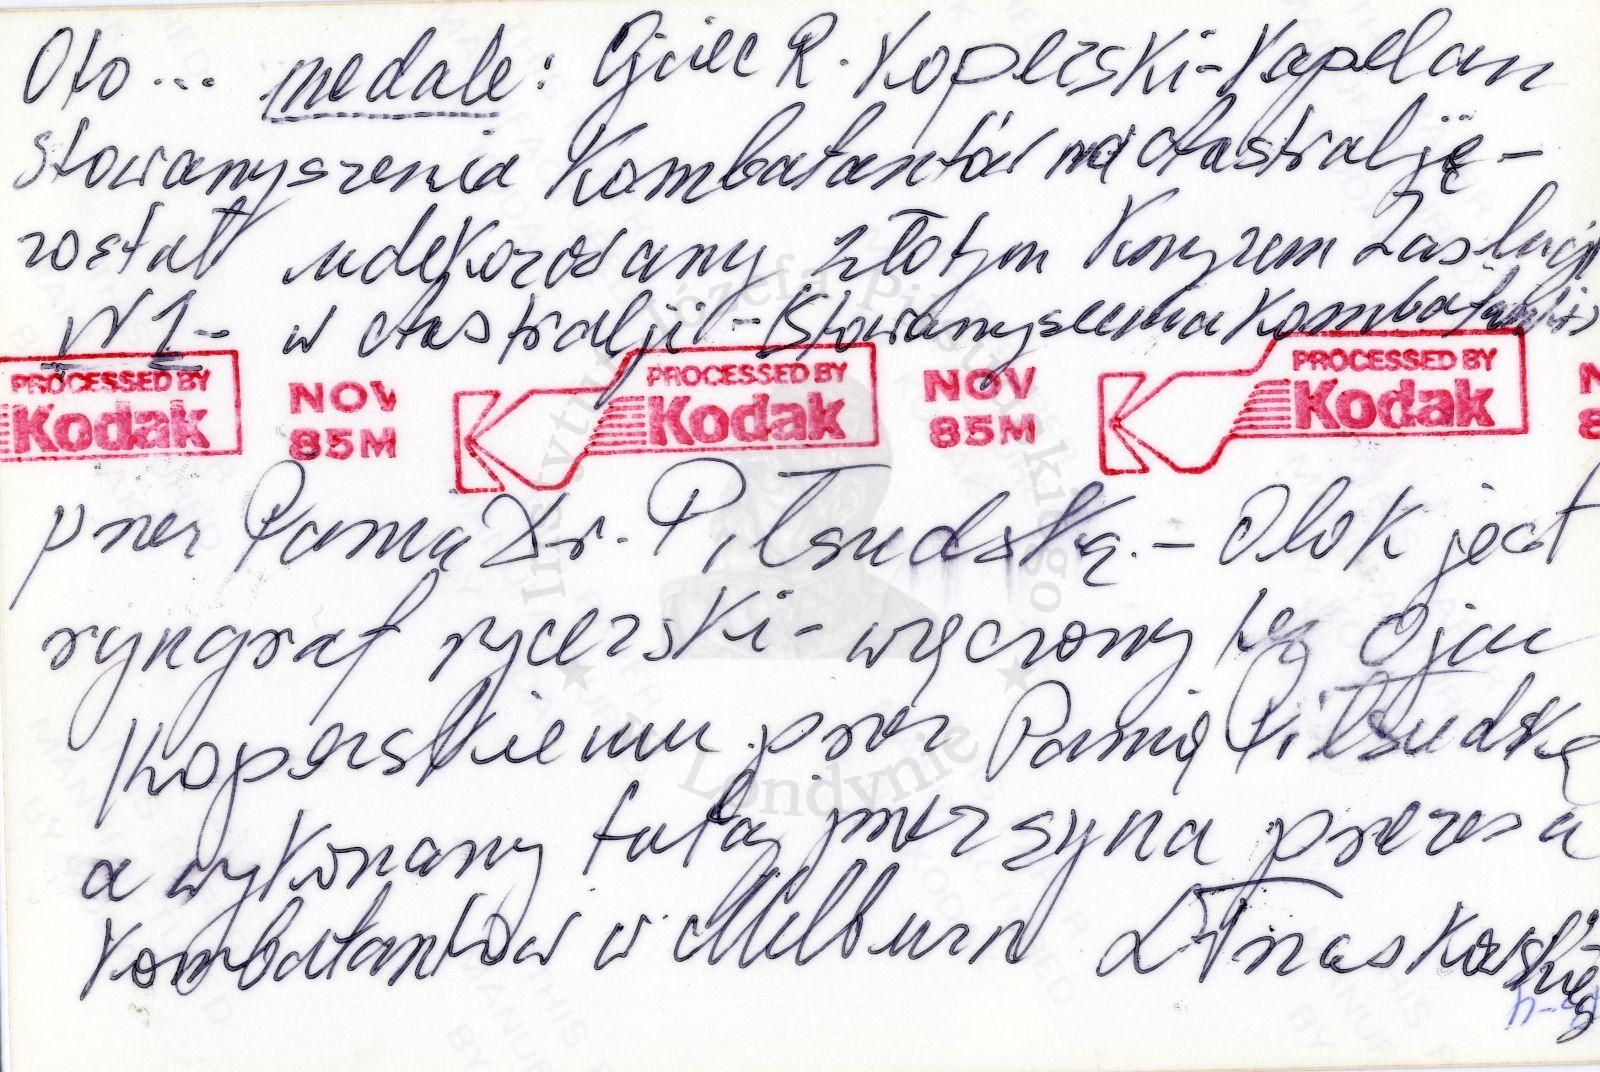 Oto ... medale: Ojciec R. Koperski - Kapelan
Stowarzyszenia Kombatantów na Australję -
został udekorowany złotym Krzyżem Zasługi
W 1 - w Australji - Stowarzyszenia Kombatantów
PROCESSED BY Kodak NOV 85M PROCESSED BY Kodak NOV 85M PROCESSED BY Kodak
przez Panią Dr. Piłsudską. - Obok jest
ryngraf rycerski - wręczony Ojcu
Koperskiemu przez Panią Piłsudską
a wykonany tutaj przez syna prezesa
Kombatantów w Melburn
Instytut Józefa Piłsudskiego
w Londynie